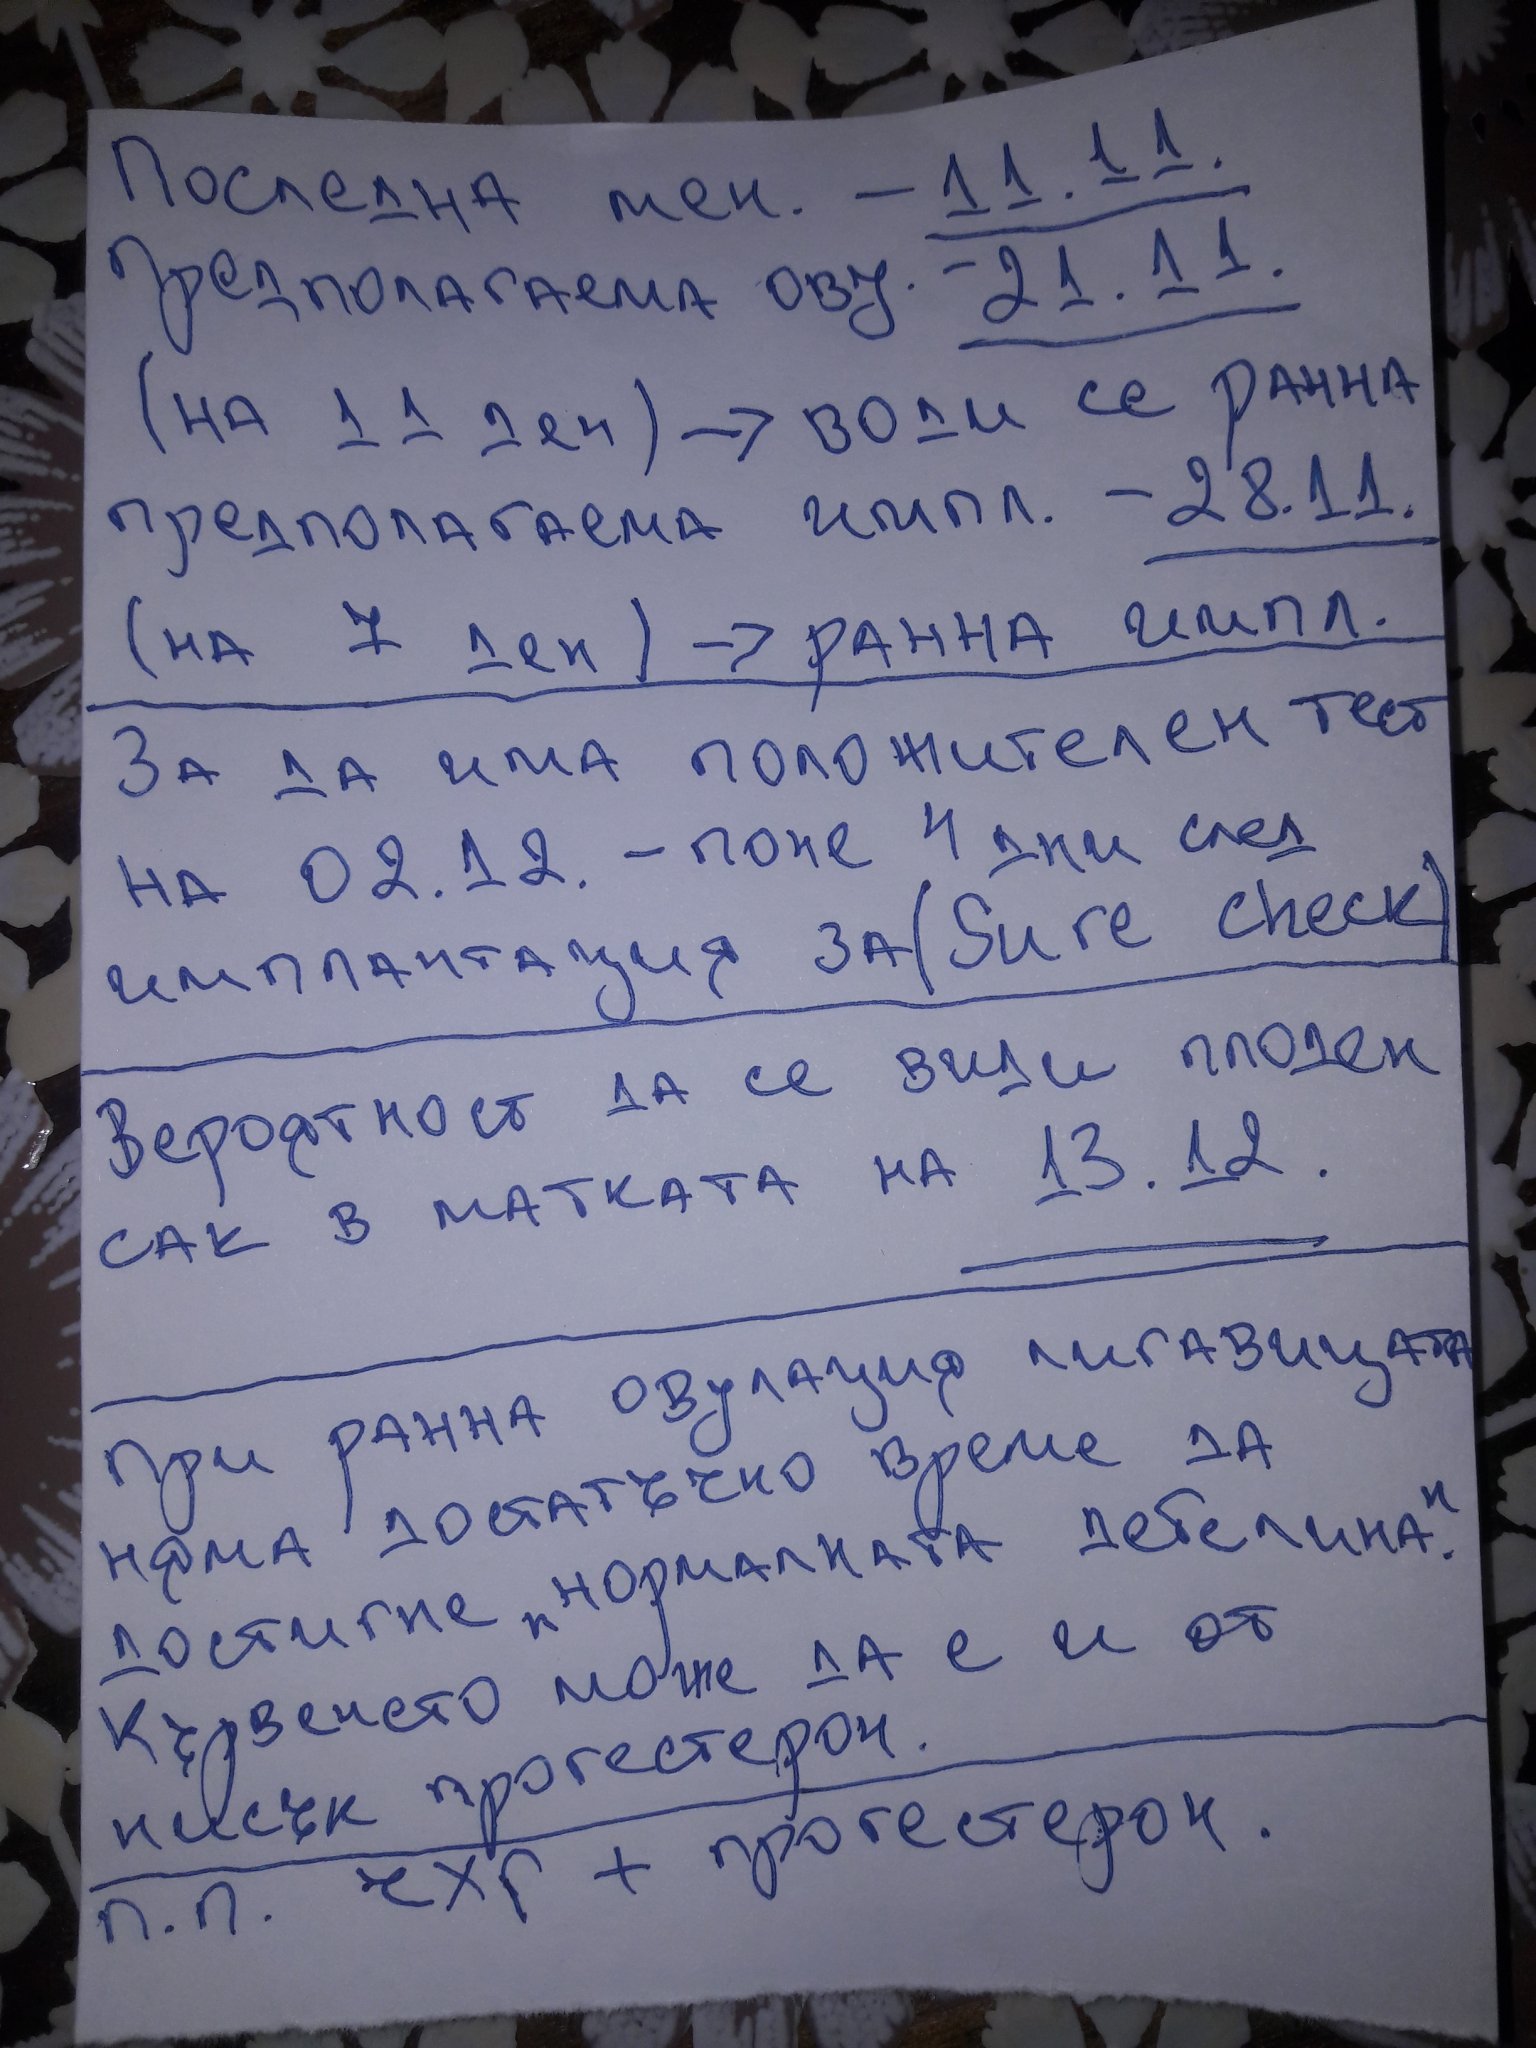 Последна мен. - 11.11.
Предполагаема ову. - 21.11.
(на 11 ден) -> води се ранна
предполагаема импл. - 28.11.
(на 7 ден) -> ранна импл.
За да има положителен тест
на 02.12. - поне 4 дни след
имплантация за (Sure check)
Вероятност да се види плоден
сак в матката на 13.12.
При ранна овулация лигавицата
няма достатъчно време да
достигне „нормалната детелина".
Кървенето може да е и от
нисък прогестерон.
п.п. чХГ + прогестерон.